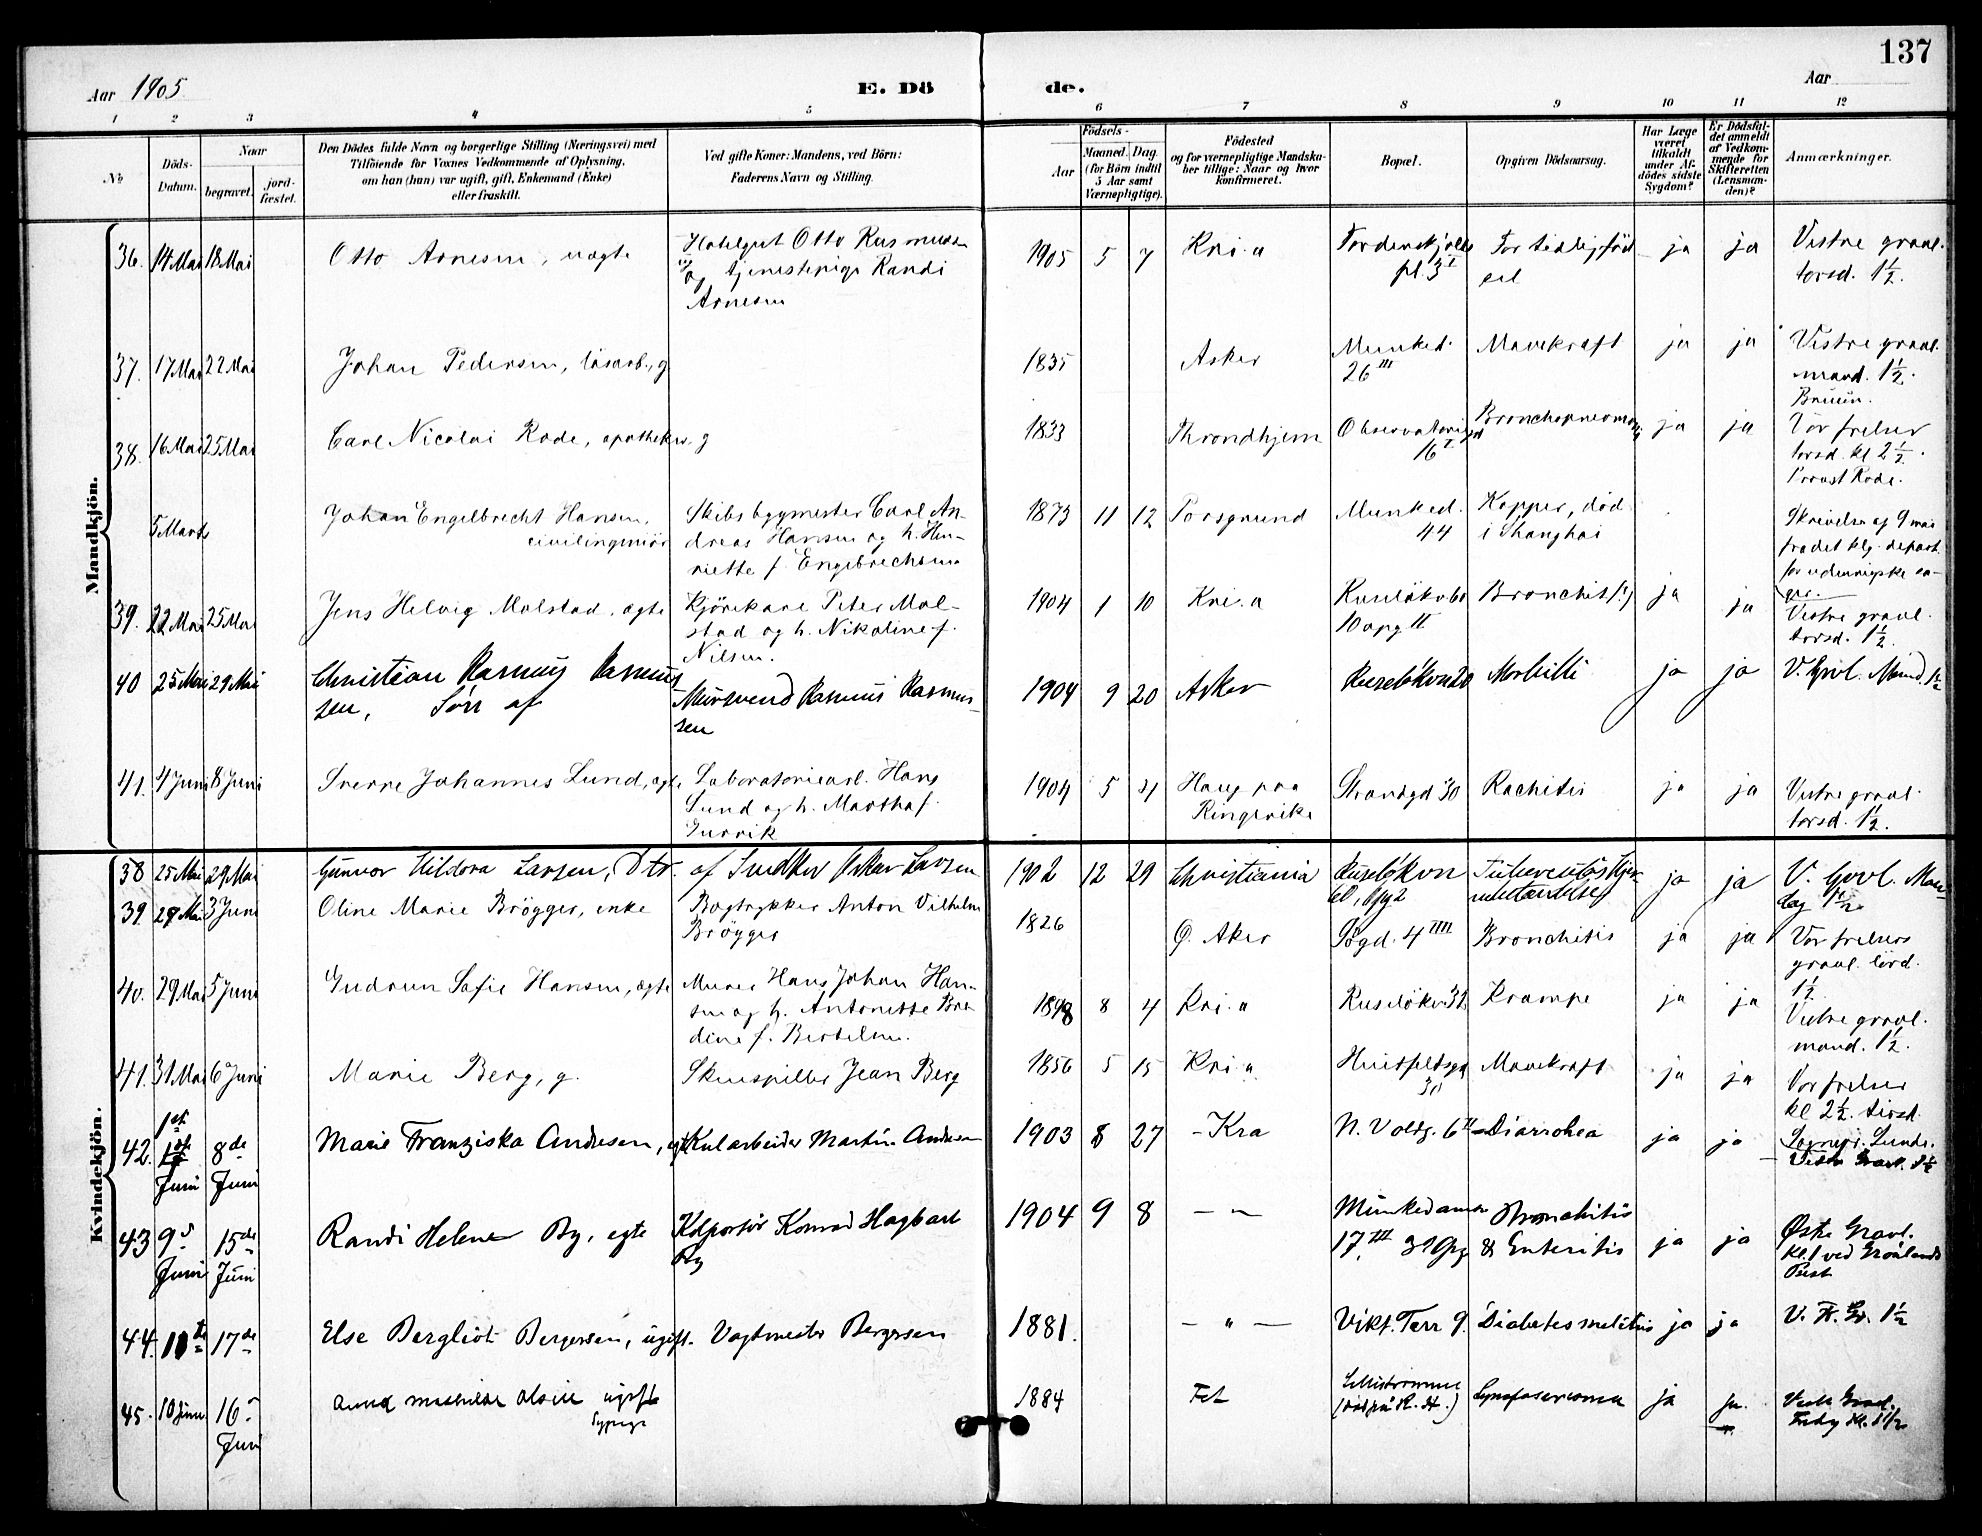 137
Aar 1905
E. Dö
de.
Aar
1 2 3 4 5 6 7 8 9 10 11 12
No
Döds-Datum.
Naar
begravet.
jord-fæstet.
Den Dödes fulde Navn og borgerlige Stilling (Næringsvei) med
Tilföiende for Voxnes Vedkommende af Oplysning,
om han (hun) var ugift, gift, Enkemand (Enke)
eller fraskilt.
Ved gifte Koner: Mandens, ved Börn:
Faderens Navn og Stilling.
Födsels-
Aar
Maaned. Dag.
(for Börn indtil
5 Aar samt
Værnepligtige).
Födested
og for værnepligtige Mandska-
ber tillige: Naar og hvor
konfirmeret.
Bopæl.
Opgiven Dödsaarsag.
Har Læge
været
tilkaldt
under Af-
dödes sidste
Sygdom?
Er Dödsfal-
det anmeldt
af Vedkom-
mende for
Skifteretten
(Lensman-
den)?
Anmærkninger.
Mandkjön.
36. 14 Mai 18 Mai Otto Arnesen, uægte
Hotelgut Otto Rasmussen
og tjenestepige Randi
Arnesen
1905 5 7 Kri.a Tordenskjolds
pl. 3 I
For tidlig föd
sel
ja ja Vestre gravl.
torsd. 1½.
37. 17 Mai 22 Mai Johan Pedersen, lösarb., g 1835 Asker Munked.
26 III
Mavekræft ja ja Vestre gravl.
mand. 1½.
Bruun.
38. 16 Mai 25 Mai Carl Nicolai Rode, apotheker, g 1833 Throndhjem Observatoriegd
16 I
Bronchopneumoni ja ja Vor frelser
torsd. kl 2½.
Provst Rode.
5 Marts Johan Engelbrecht Hansen,
civilingeniör
Skibsbygmester Carl An-
dreas Hansen og h. Hen-
riette f. Engebrechtsen
1873 11 12 Porsgrund Munked.
44
Kopper, död
i Shanghai
Skrivelse af 9 mai
fra det klg. depart.
for udenrigske sa-
ger.
39. 22 Mai 25 Mai Jens Helvig Molstad, ægte
Kjörekarl Peter Mol-
stad og h. Nikoline f.
Nilsen.
1904 1 10 Kri.a Ruselökv 60
10 opg II
Bronchit (?) ja ja Vestre gravl.
torsd. 1½.
40 25 Mai 29 Mai Christian Rasmus Rasmus
sen, Sön af
Mursvend Rasmus Rasmus-
sen
1904 9 20 Asker Ruselökvn 20 Morbilli ja ja V. Grvl. Mand. 1½
41. 4 Juni 8 Juni Sverre Johannes Lund, ægte
Laboratoriearb. Hans
Lund og h. Martha f.
Gurrik
1904 5 4 Haug paa
Ringerike
Strandgd 30 Rachitis ja ja Vestre gravl.
torsd. 1½.
Kvindekjön.
38 25 Mai 29 Mai Gunvor Hildora Larsen, Dtr. af Snedker Oskar Larsen
1902 12 29 Christiania Ruselökvn
60, Opg 2
Tuberculös Hjer-
nebetændelse
ja ja V. Grvl. Man-
dag 1½.
39. 28 Mai 3 Juni Oline Marie Brögger, enke
Bogtrykker Anton Vilhelm
Brögger
1826 Ö. Aker Pögd. 4 IIII Bronchitis ja ja Vor frelsers
gravl. lörd.
1½
40. 29 Mai 5 Juni Gudrun Sofie Hansen, ægte
Murer Hans Johan Han-
sen og h. Antonette Bre-
dine f. Bertelsen.
1898 8 4 Kri.a Ruselökv 31 Krampe ja ja Vestre gravl.
mand. 1½.
41. 31 Mai 6 Juni Marie Berg, g. Skuespiller Jean Berg
1856 5 15 Kri.a Huitfeldtsgd
Mavekræft ja ja Vor frelser
kl 2½. tirsd.
Sognepr. Lunde.
42. 1st Juni 8de Juni Marie Franziska Andresen, egt Kularbeider Martin Andresen
1903 8 27 - Kra N. Voldg. 6 II Diarrohea ja ja Vestre Gravl. 1½
43 9d Juni 15de Juni Randi Helene By, egte Kolportör Konrad Hagbart
By
1904 9 8 — " — Munkedamsv
17, III 3 Opg
Bronchitis
& Enteritis
ja ja Östre Gravl.
Kl. 1 ved Grönlands
Post
44. 10de 17de Else Bergliot Bergersen, ugift. Vagtmester Bergersen
1881. — " — Vikt. Terr 9. Diabetes melitus ja ja V. Fr. Gr. 1½
45. 10 Juni 16d Juni Anna Mathilde Olsen ugift
Sypige
1884 Fet Lilleströmmen
(död på R. H.)
Lymfosarcoma ja ja. Vestre Gravl.
Fredag Kl. 1½